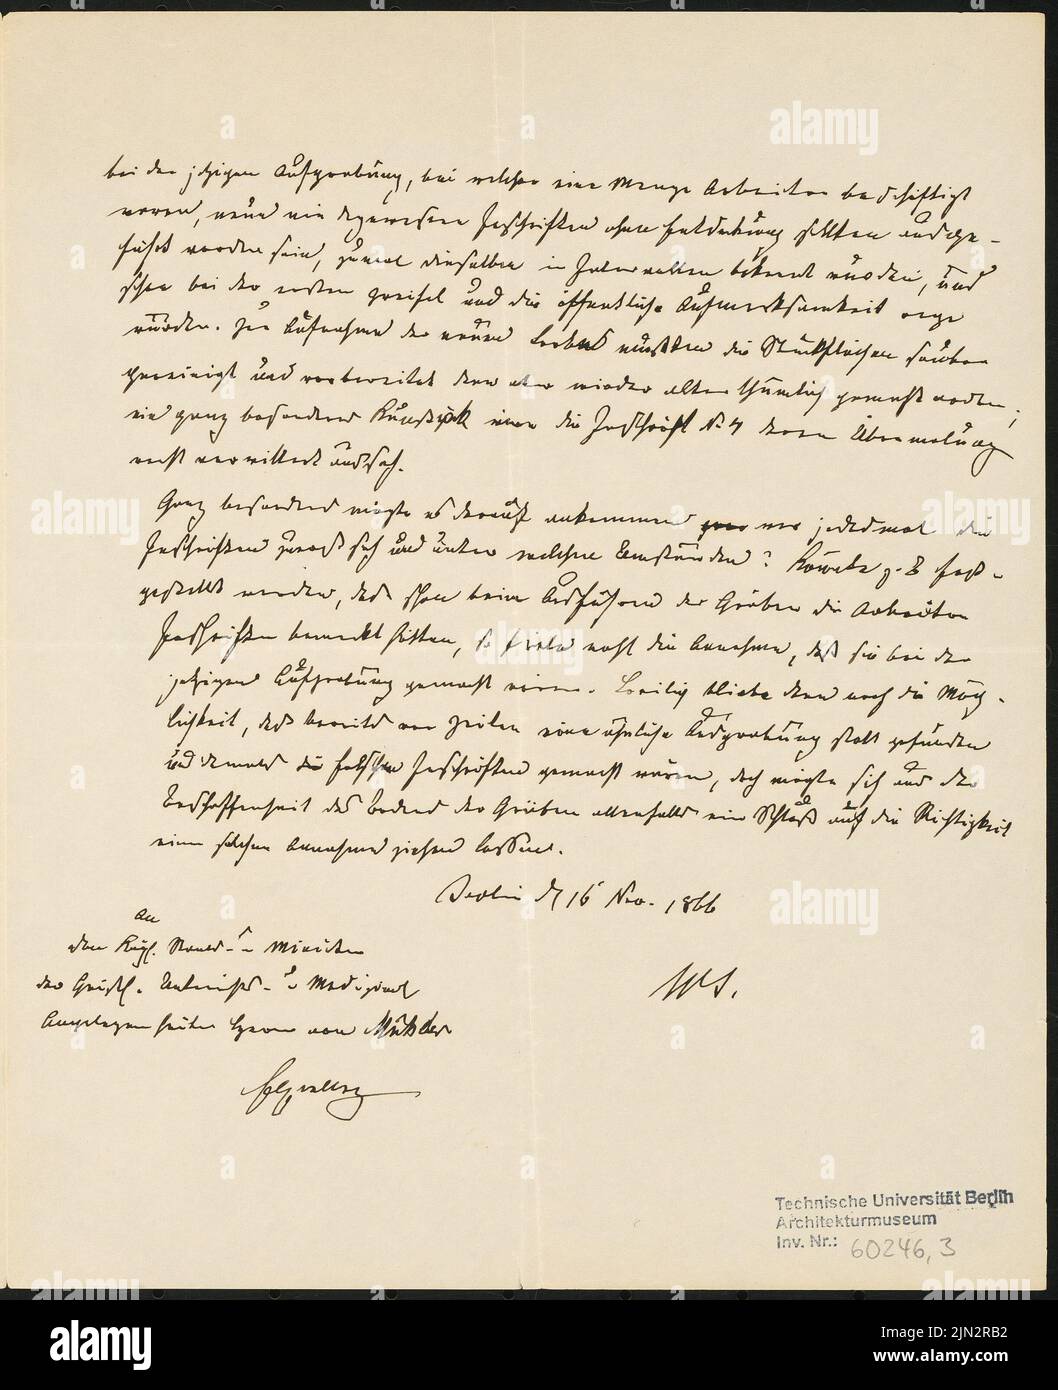 bei der jetzigen Aufgrabung, bei welcher eine Menge Arbeiter beschäftigt
waren, wenn die Inschriften ohne Entdeckung sollten ausge-
führt worden sein, zumal dieselben in Intervallen bekannt wurden, und
schon bei der ersten Zweifel und die öffentliche Aufmerksamkeit rege
wurden. Zur Aufnahme der neuen mussten die Stuckflächen sauber
gereinigt und vorbereitet dann aber wieder alterthümlich gemacht werden;
ein ganz besonderes Kunststück wäre die Inschrift N. 4 deren Übermalung
recht verwittert aussah.
Ganz besonders möchte es darauf ankommen wer jedesmal die
Inschriften zuerst sah und unter welchen Umständen? Könnte z. B. fest-
gestellt werden, dass schon beim Ausführen der Gräben die Arbeiter
Inschriften bemerkt hätten, so wohl die Annahme, daß sie bei der
jetzigen Aufgrabung gemacht wären. Freilich bliebe dann noch die Mög-
lichkeit, dass bereits vor Zeiten eine ähnliche Ausgrabung statt gefunden
und damals die falschen Inschriften gemacht wären, doch möchte sich aus der
Beschaffenheit des Bodens der Gräben allenfalls ein Schluß auf die Richtigkeit
einer solchen Annahme ziehen lassen.
Berlin d. 16 Nov. 1866
An
den Kgl. Staats- u Minister
der Geistl. Unterrichts- u Medizinal
Angelegenheiten Herrn von Mühler
Excellenz
Technische Universität Berlin
Architekturmuseum
Inv. Nr.: 60246,3
alamy
Image ID: 2JN2RB2
www.alamy.com